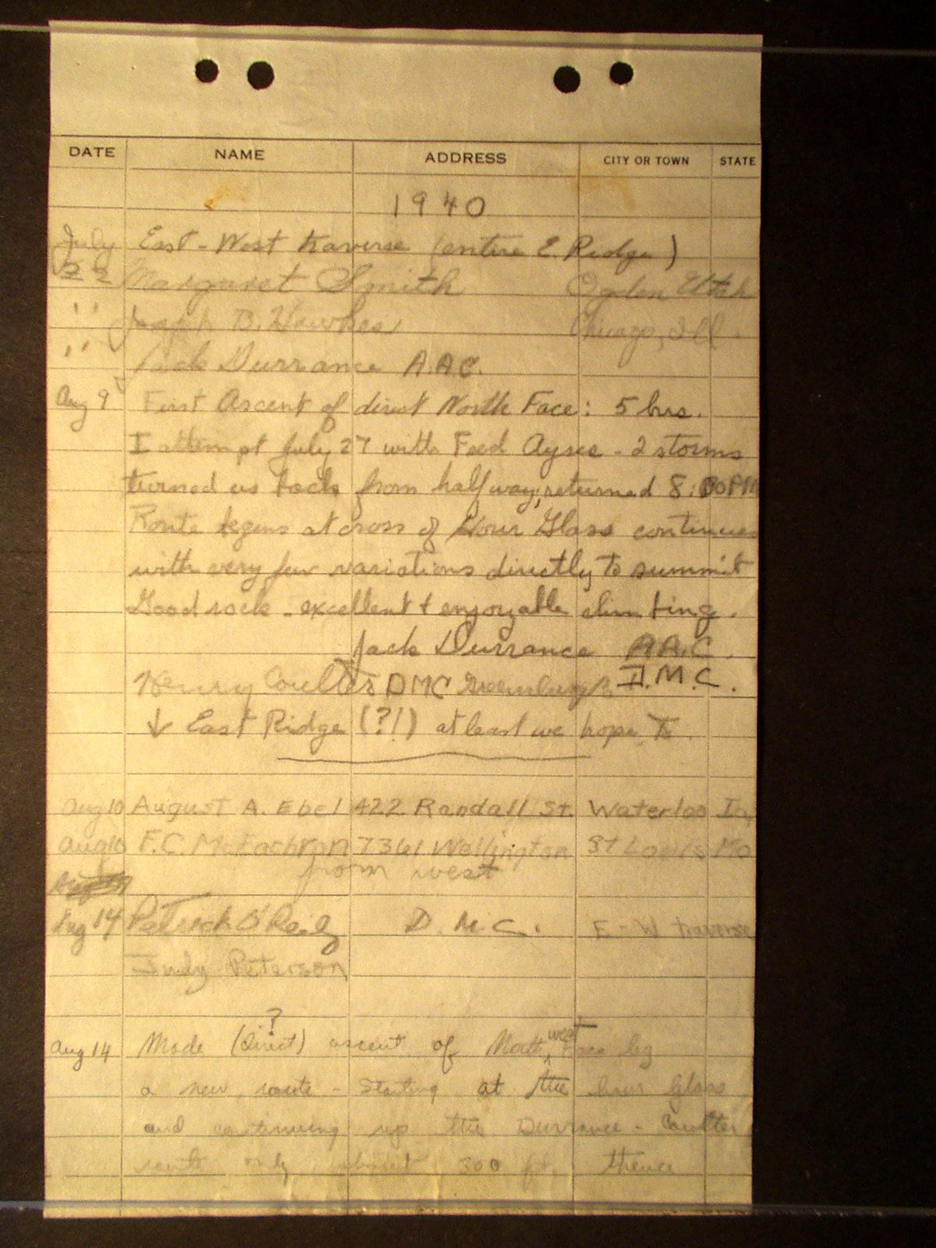 DATE NAME ADDRESS CITY OR TOWN STATE
1940
July East - West traverse (entire E. Ridge)
22 Margaret Smith Ogden Utah
" Joseph B. Hawkes Chicago, Ill.
" Jack Durrance A.A.C.
Aug 9 First Ascent of direct North Face: 5 hrs.
I attempt July 27 with Fred Ayres - 2 storms
turned us back from halfway, returned 8:00 PM
Route begins at cross of Hour Glass continues
with very few variations directly to summit
Good rock - excellent + enjoyable climbing.
Jack Durrance A.A.C.
Henry Coulter DMC Greensburg D.M.C.
↓ East Ridge (?!) at least we hope to.
Aug 10 August A. Ebel 422 Randall St. Waterloo Ia.
Aug 10 F.C. McEachron 7361 Wellington St Louis Mo
from west
Aug 14 Patrick O'Reily D.M.C. E-W traverse
Judy Peterson
?
Aug 14 Made (direct) ascent of North west Face by
a new route - starting at the hour glass
and continuing up the Durrance - Coulter
route only about 300 ft. thence